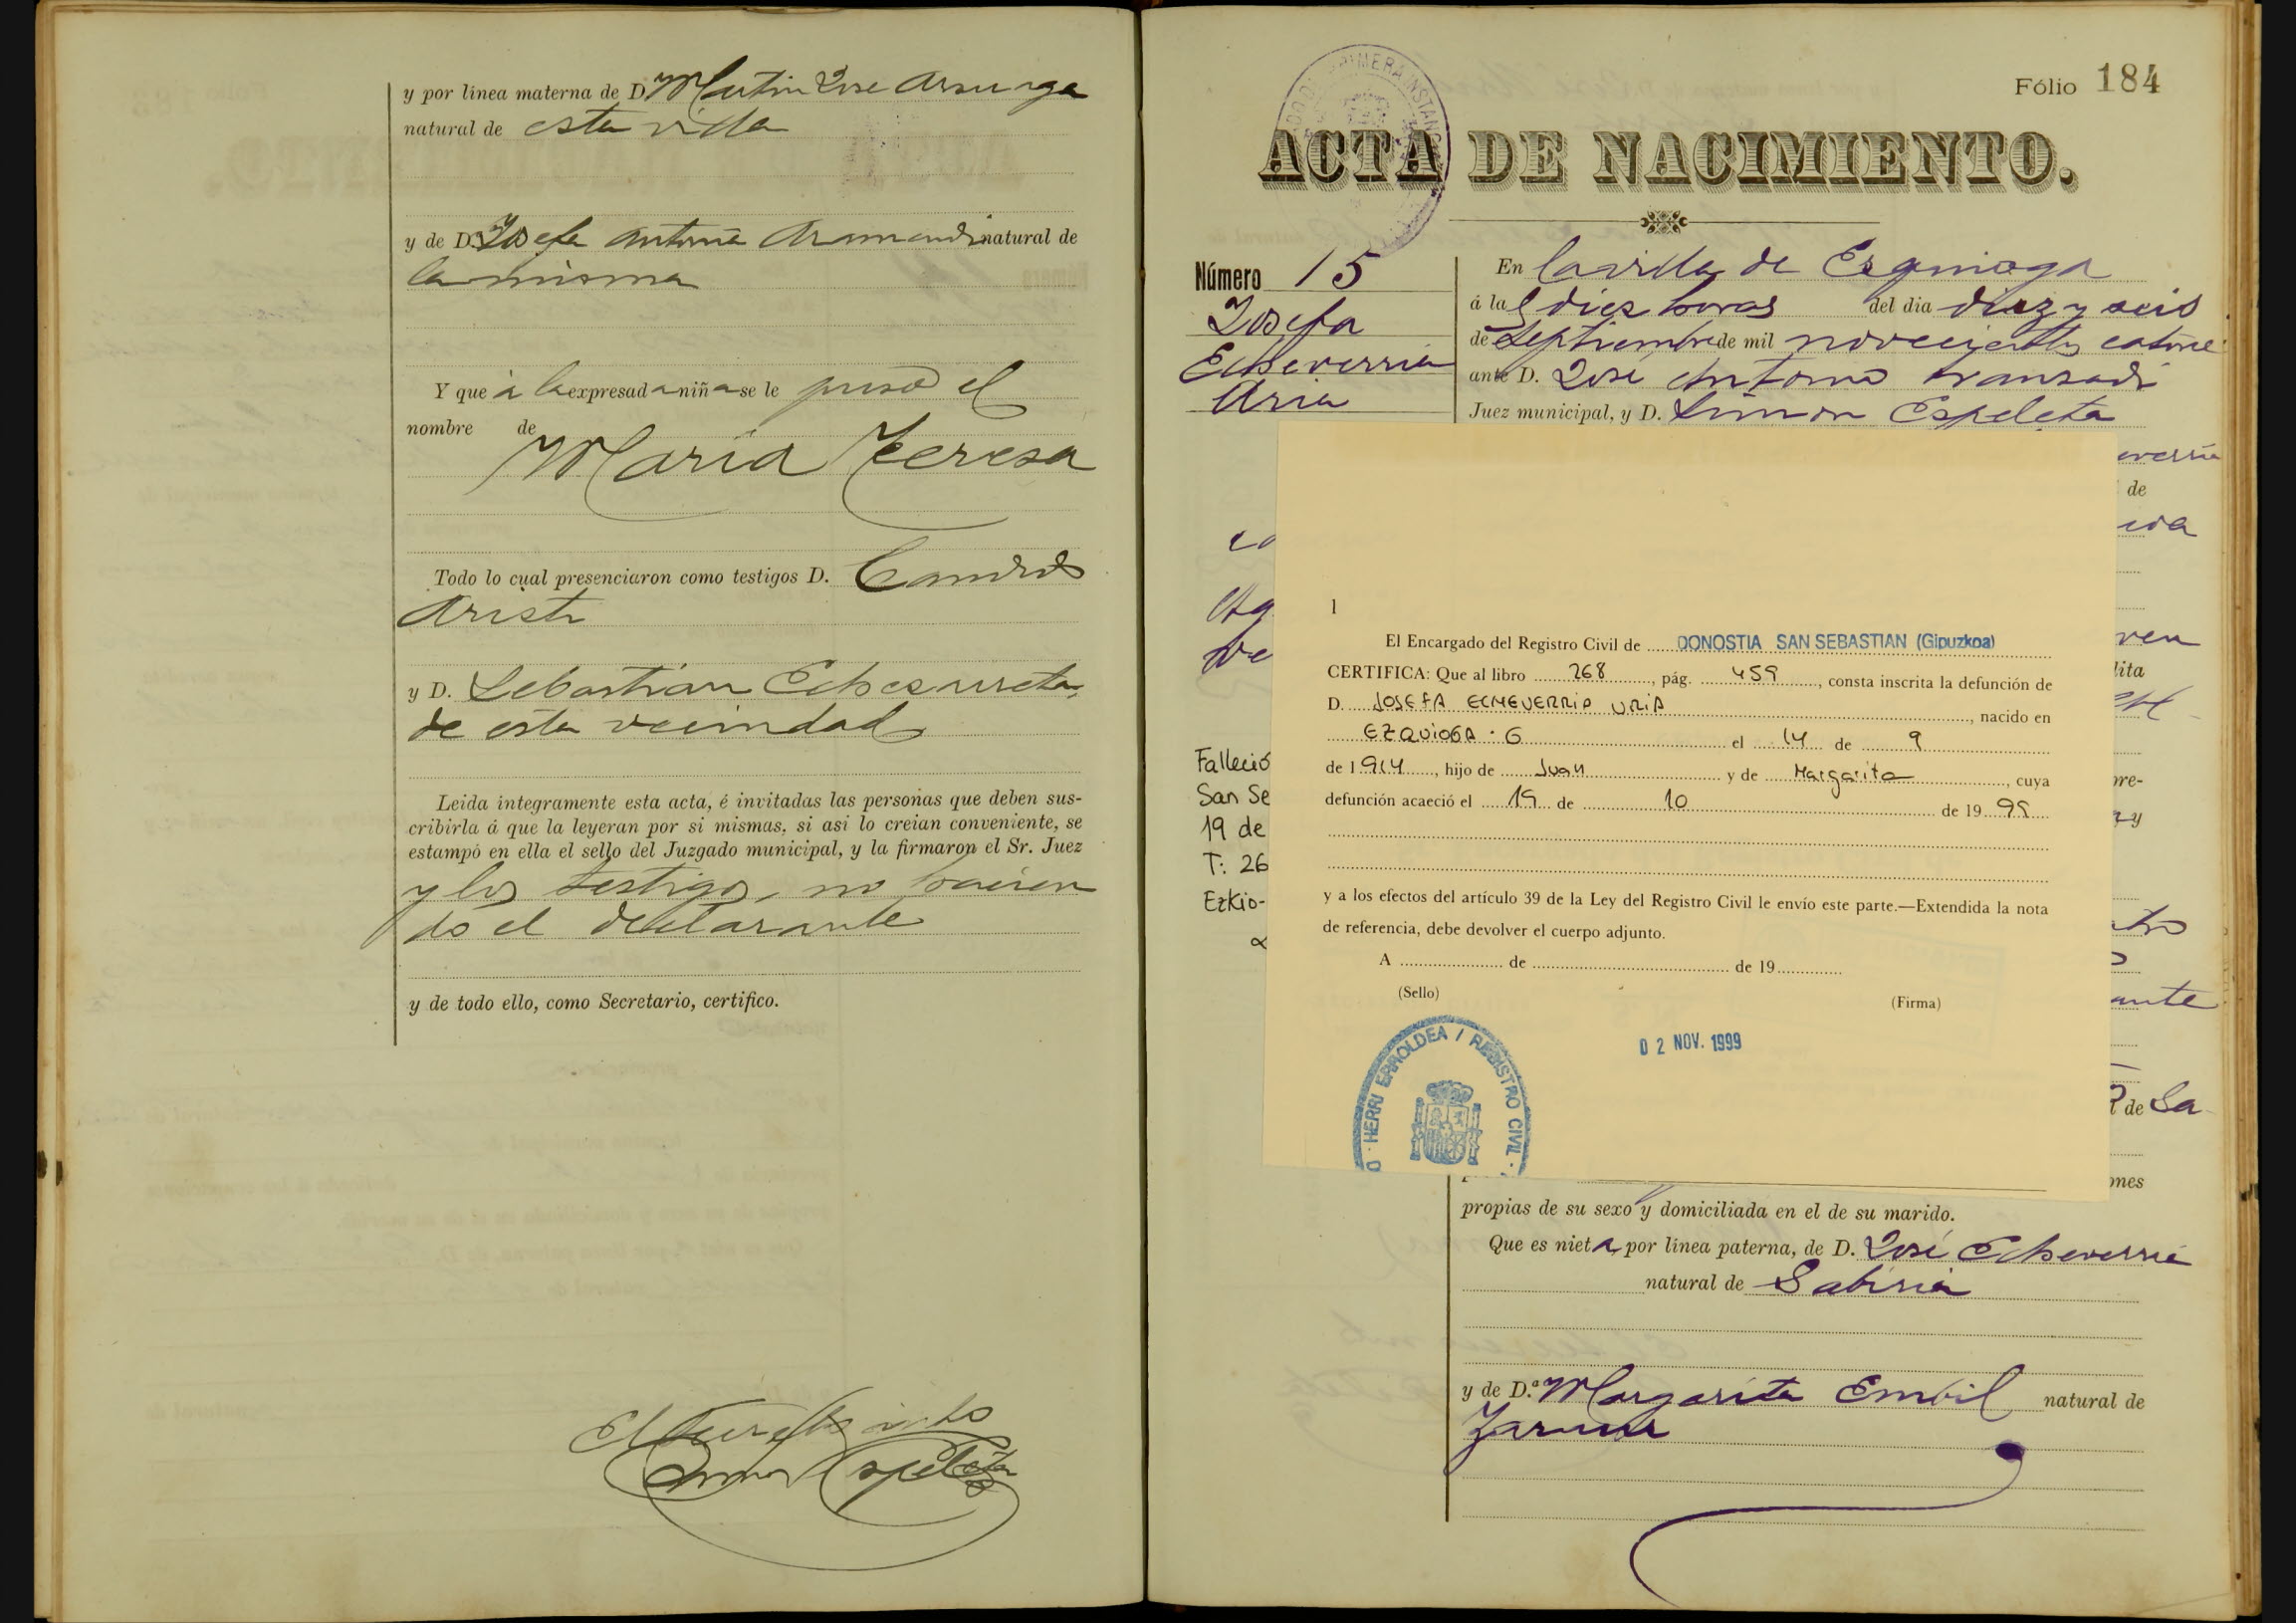 y por línea materna de D. Martin Jose Arsuaga
natural de esta villa
y de D.ª Josefa Antonia Aramendi natural de
la misma
Y que á la expresada niña se le puso el
nombre de
Maria Teresa
Todo lo cual presenciaron como testigos D. Candido
Aristi
y D. Sebastian Echezarreta,
de esta vecindad
Leida íntegramente esta acta, é invitadas las personas que deben sus-
cribirla á que la leyeran por si mismas, si asi lo creian conveniente, se
estampó en ella el sello del Juzgado municipal, y la firmaron el Sr. Juez
y los testigos, no hacien
do el declarante
y de todo ello, como Secretario, certifico.
Simon Espeleta
Fólio 184
ACTA DE NACIMIENTO.
Número 15
Josefa
Echeverria
Uria
En la villa de Ezquioga
á las diez horas del dia diez y seis
de Septiembre de mil novecientos catorce
ante D. José Antonio Aranzadi
Juez municipal, y D. Simon Espeleta
everria
de
ven
dita
Falleció
San Se
19 de
T: 26
Ezkio-
pre-
y
ante
de Sa
ones
1
El Encargado del Registro Civil de DONOSTIA SAN SEBASTIAN (Gipuzkoa)
CERTIFICA: Que al libro 268, pág. 459, consta inscrita la defunción de
D. JOSEFA ECHEVERRIA URIA, nacido en
EZQUIOGA - G el 14 de 9
de 1914, hijo de Juan y de Margarita, cuya
defunción acaeció el 19 de 10 de 1999
y a los efectos del artículo 39 de la Ley del Registro Civil le envío este parte.—Extendida la nota
de referencia, debe devolver el cuerpo adjunto.
A de de 19
(Sello)
(Firma)
02 NOV. 1999
HERRI ERROLDEA / REGISTRO CIVIL
propias de su sexo y domiciliada en el de su marido.
Que es nieta, por línea paterna, de D. José Echeverria
natural de Gabiria
y de D.ª Margarita Embil natural de
Zarauz